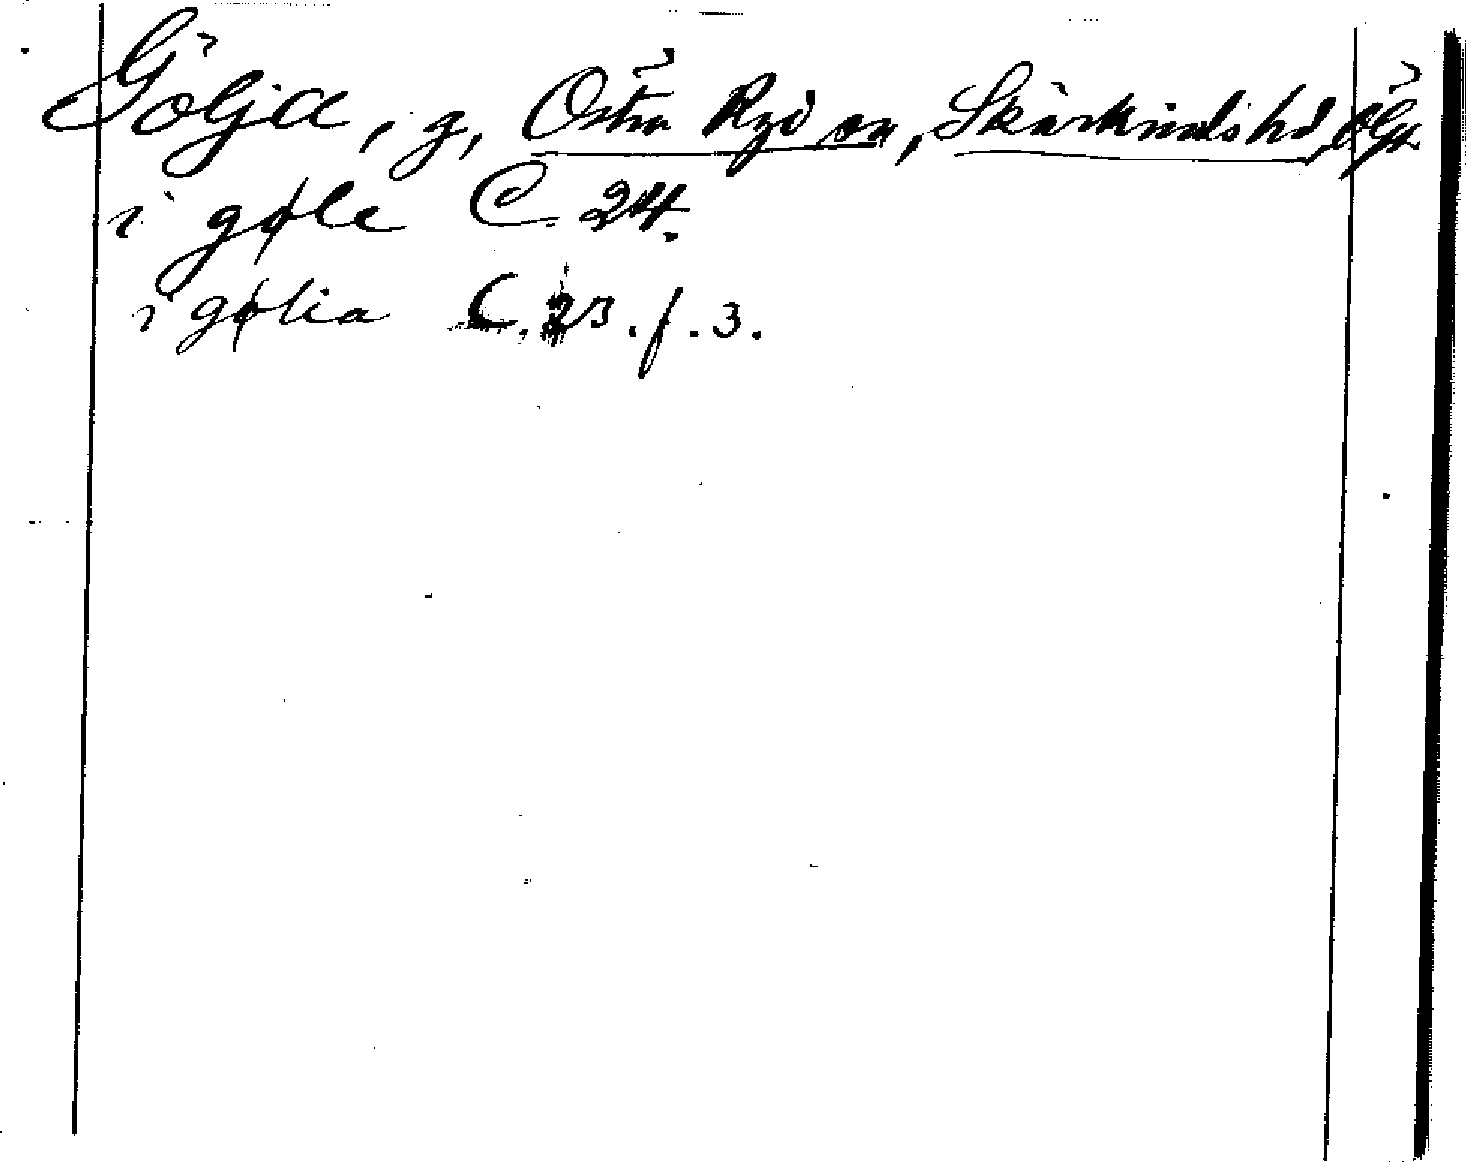 Gölja, g, Östra Ryd sn, Skärkinds hd, Ög.
i gøle C 24.
i gølia C. 23. f. 3.